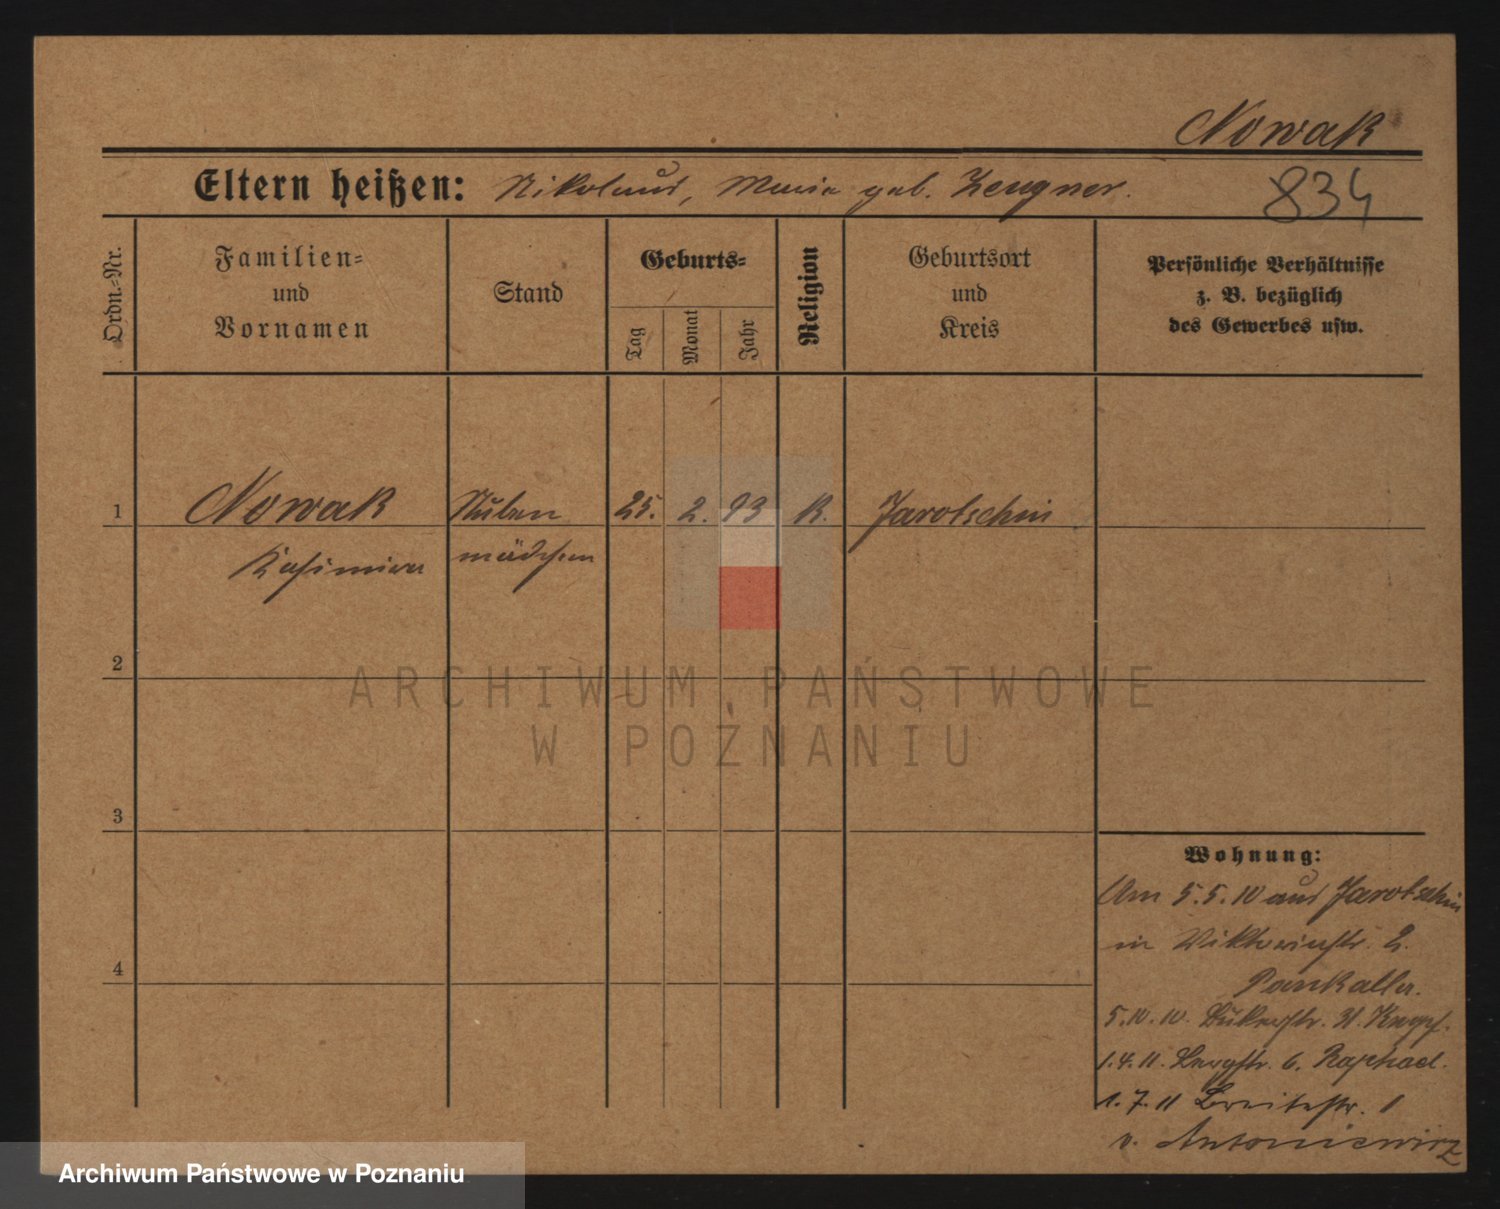 Nowak
Eltern heißen: Nikolaus, Maria geb. Zeugner.
834
Ordn.-Nr.
Familien-
und
Vornamen
Stand
Geburts-
Tag
Monat
Jahr
Religion
Geburtsort
und
Kreis
Persönliche Verhältnisse
z. B. bezüglich
des Gewerbes usw.
1 Nowak Stuben 25. 2. 93 K. Jarotschin
Kasimira mädchen
2
3
4
Wohnung:
Am 5.5.10 aus Jarotschin
in Viktoriastr. 2.
Pankalla.
5.10.10. Bukerstr. 31.
1.4.11. Bergstr. 6. Raphael.
1.7.11 Breitestr. 1
v. Antoniewicz
ARCHIWUM PAŃSTWOWE
W POZNANIU
Archiwum Państwowe w Poznaniu